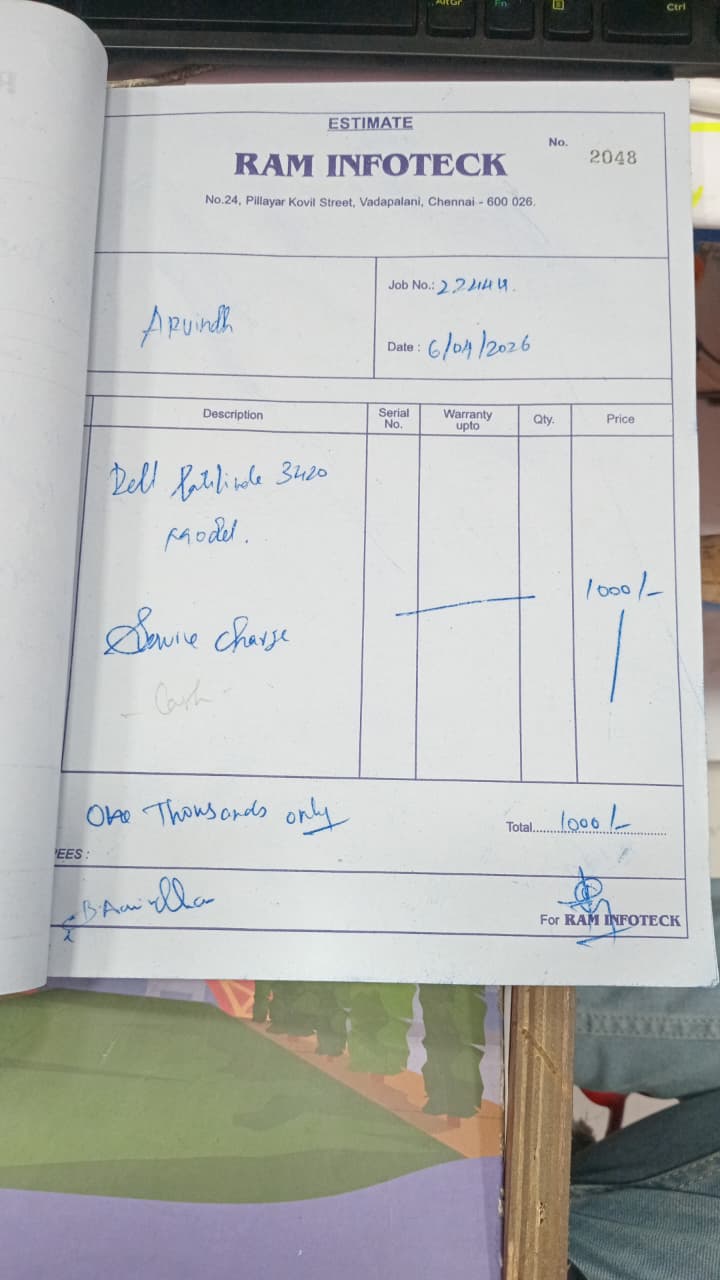 AltGr
Fn
Ctrl
ESTIMATE
No. 2048
RAM INFOTECK
No.24, Pillayar Kovil Street, Vadapalani, Chennai - 600 026.
Arvindh
Job No.: 22444.
Date : 6/04/2026
Description Serial No. Warranty upto Qty. Price
Dell Latitude 3420
Model.
1000/-
Service charge
- Cash -
One Thousands only
Total 1000/-
EES :
For RAM INFOTECK